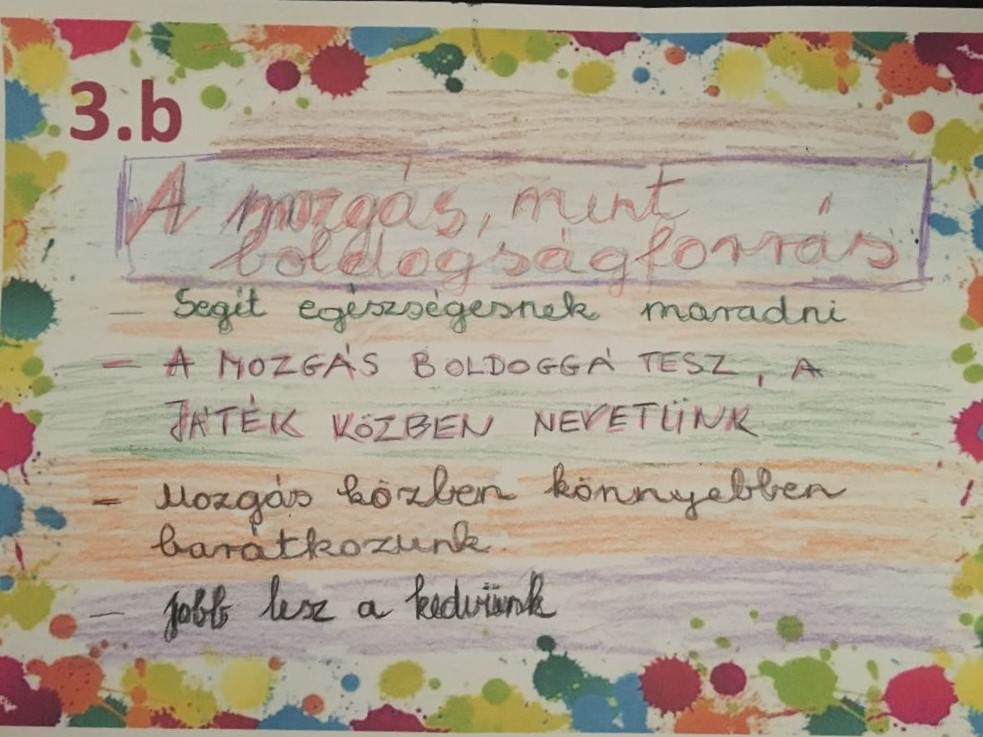 3.b
A mozgás, mint
boldogságforrás
- Segít egészségesnek maradni
- A MOZGÁS BOLDOGGÁ TESZ, A
JÁTÉK KÖZBEN NEVETÜNK
- Mozgás közben könnyebben
barátkozunk.
- Jobb lesz a kedvünk